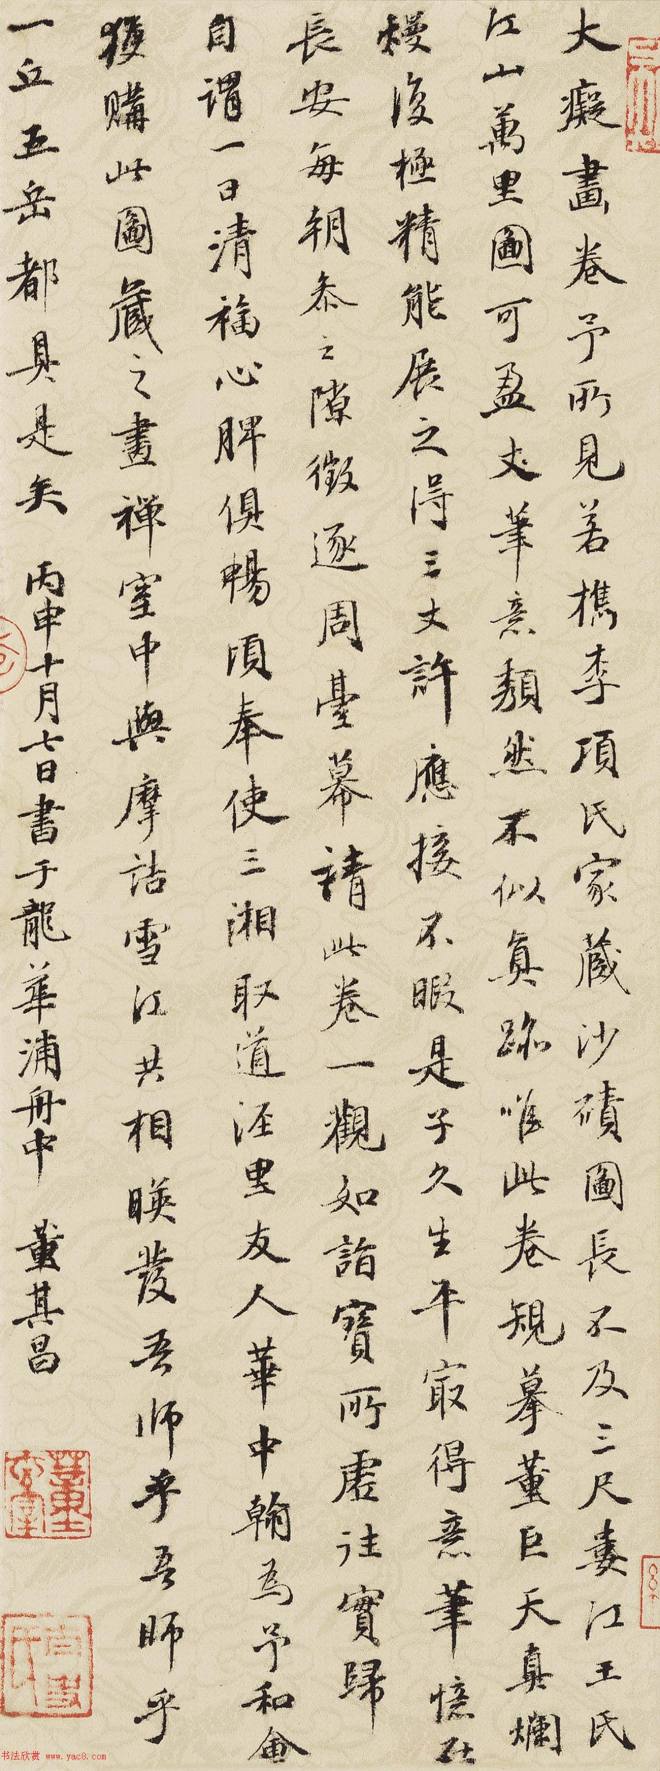 大癡畫卷予所見若檇李項氏家藏沙磧圖長不及三尺婁江王氏
江山萬里圖可盈丈筆意頹然不似真跡唯此卷規摹董巨天真爛
熳復極精能展之得三丈許應接不暇是子久生平最得意筆憶在
長安每朝參之隙徵逐周臺幕請此卷一觀如詣寶所虛往實歸
自謂一日清福心脾俱暢頃奉使三湘取道涇里友人華中翰為予和會
獲購此圖藏之畫禪室中與摩詰雪江共相暎發吾師乎吾師乎
一丘五岳都具是矣 丙申十月七日書于龍華浦舟中 董其昌
书法欣赏 www.yac8.com